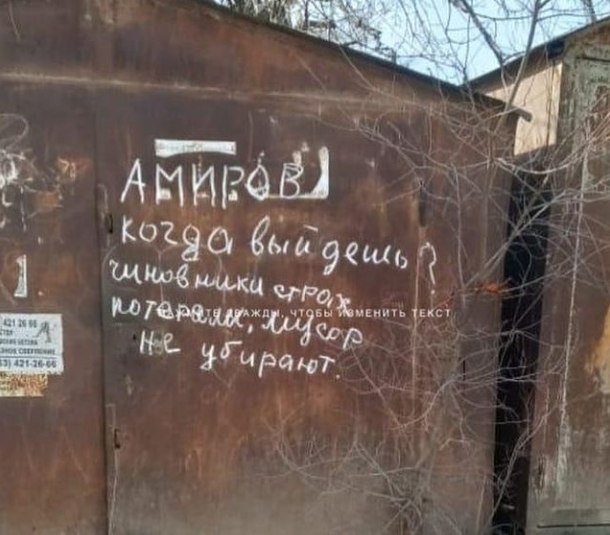 АМИРОВ
когда выйдешь?
чиновники страх
потеряли, мусор
не убирают.
НАЖМИТЕ ДВАЖДЫ, ЧТОБЫ ИЗМЕНИТЬ ТЕКСТ
1.
421 26 66
421-26-66